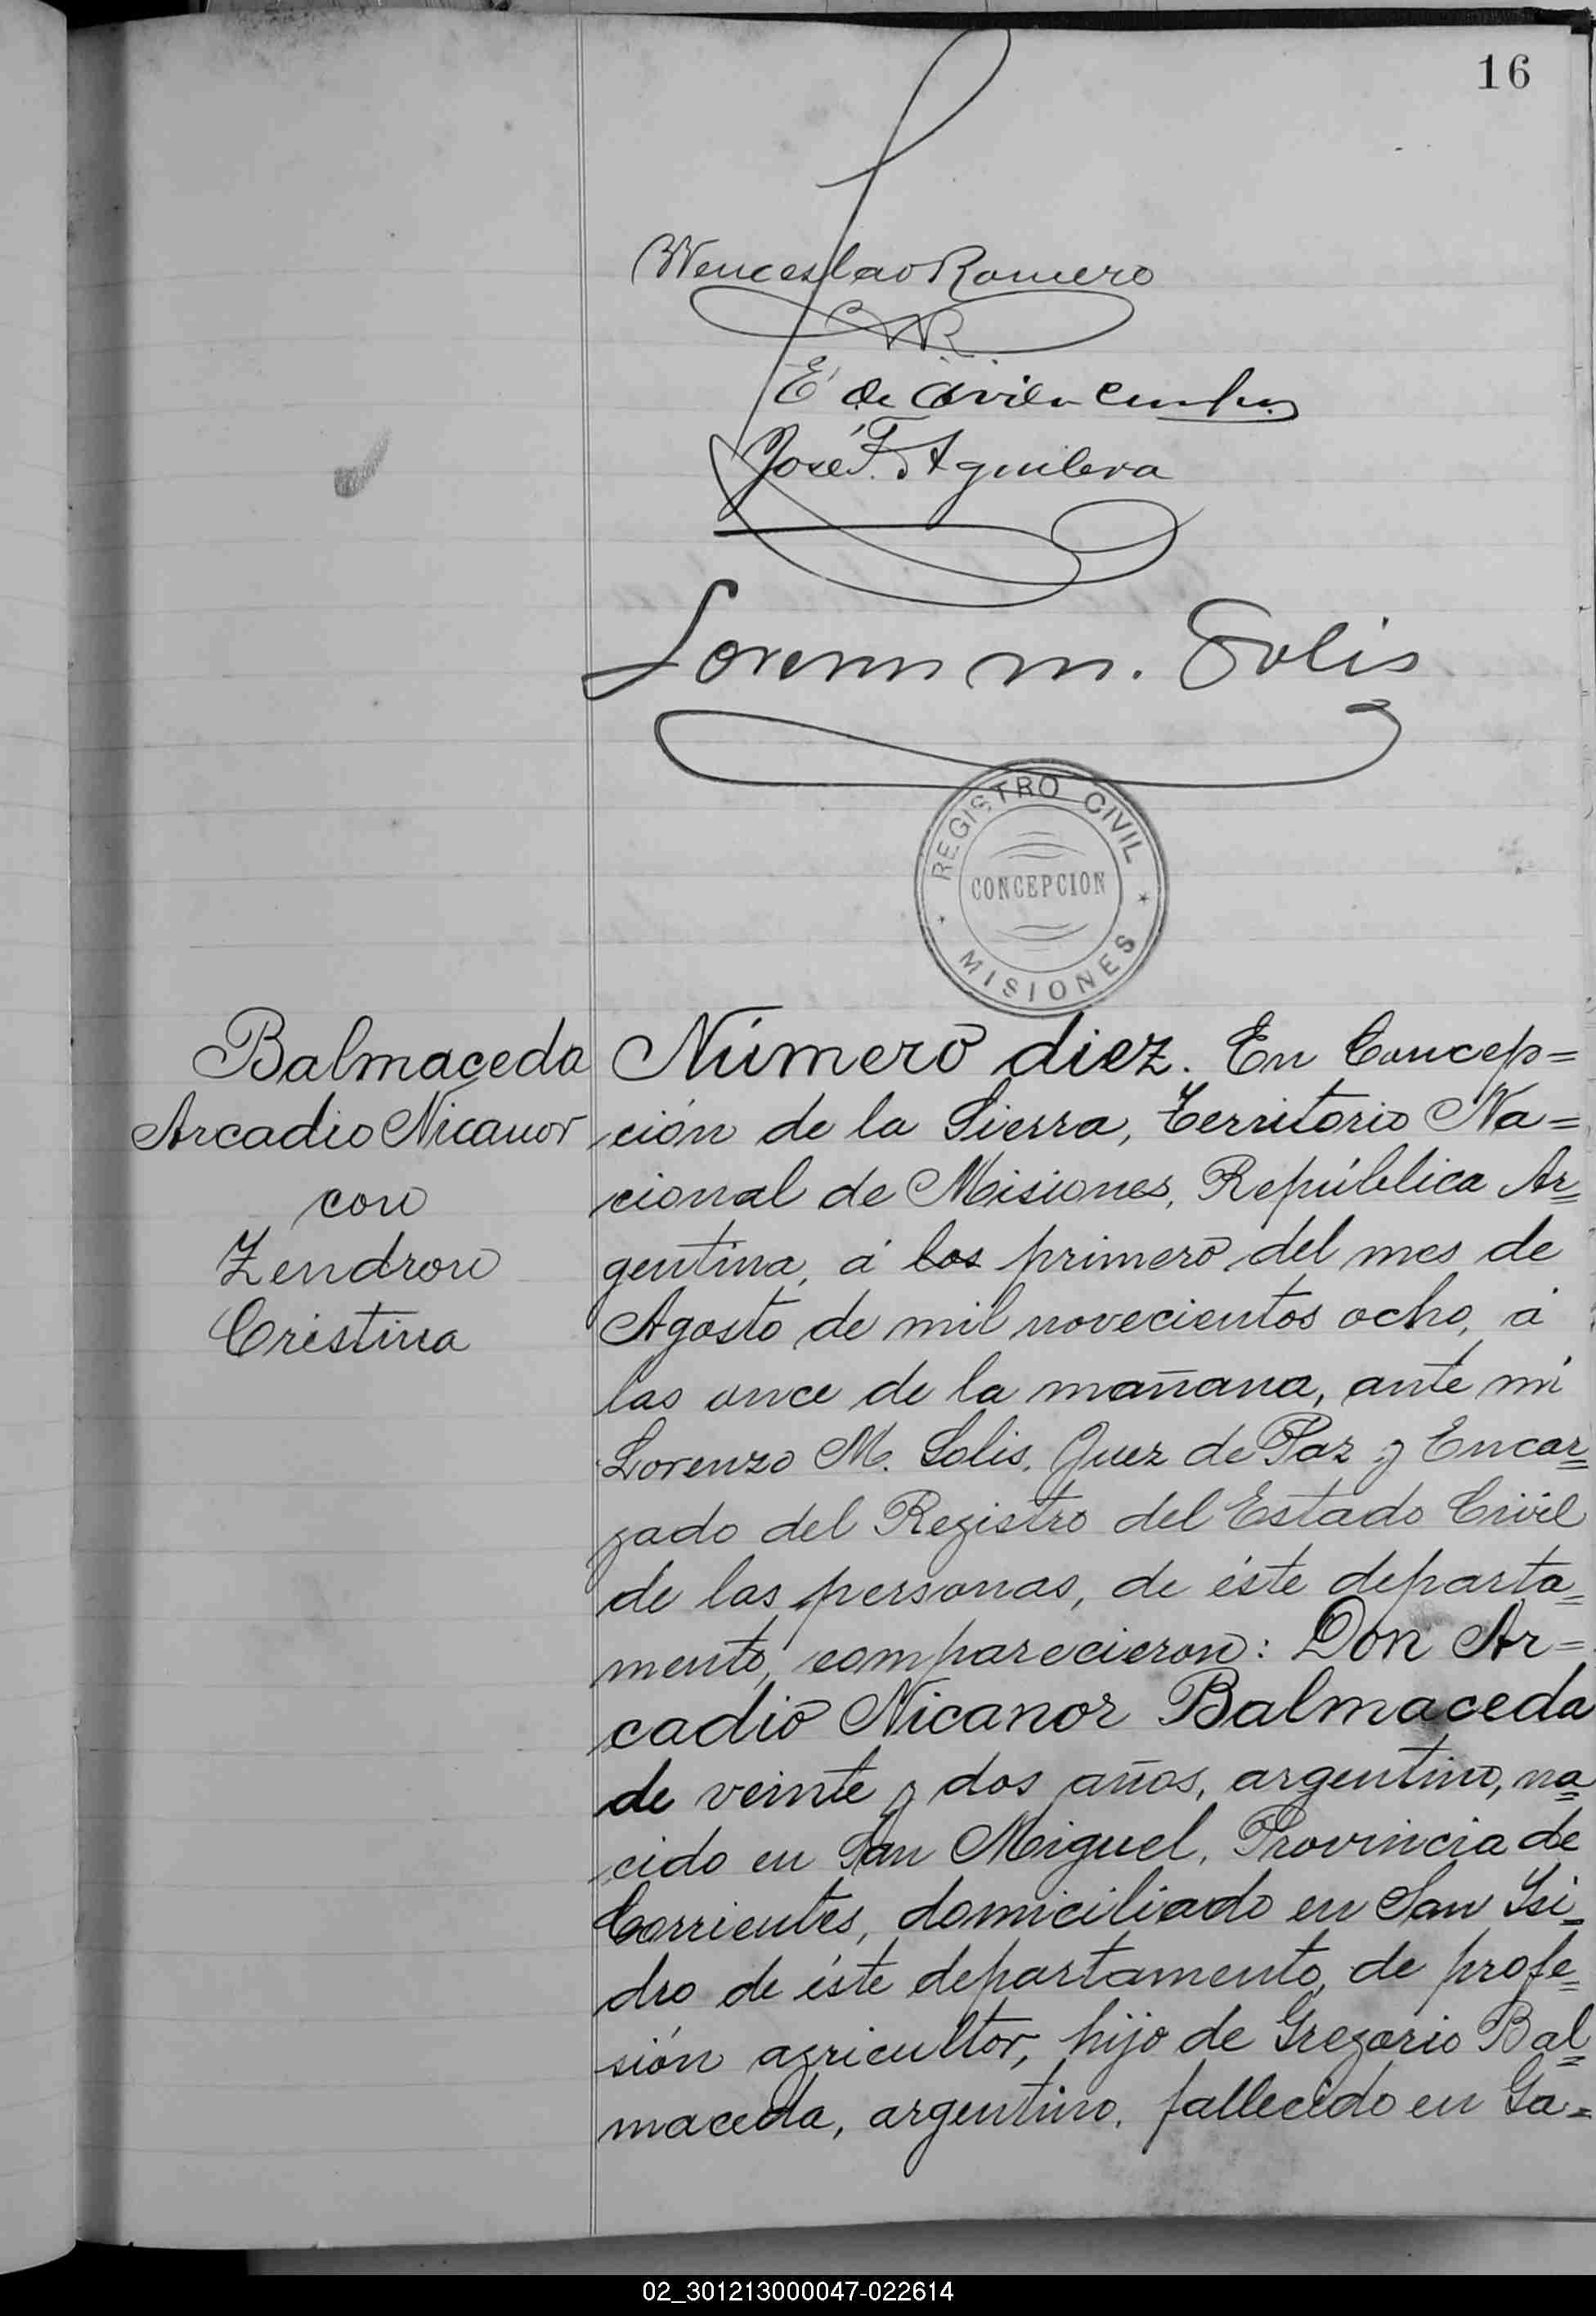 16
Wenceslao Romero
WR
E de Avila
José F. Aguilera
Lorenzo M. Solis
REGISTRO CIVIL
CONCEPCION
MISIONES
Balmaceda
Arcadio Nicanor
con
Zendron
Cristina
Número diez. En Concep=
ción de la Sierra, Territorio Na=
cional de Misiones, República Ar=
gentina, á los primero del mes de
Agosto de mil novecientos ocho, á
las once de la mañana, ante mí
Lorenzo M. Solis, Juez de Paz y Encar=
gado del Registro del Estado Civil
de las personas, de éste departa=
mento, comparecieron: Don Ar=
cadio Nicanor Balmaceda
de veinte y dos años, argentino, na=
cido en San Miguel, Provincia de
Corrientes, domiciliado en San Isi=
dro de éste departamento, de profe=
sión agricultor, hijo de Gregorio Bal=
maceda, argentino, fallecido en Ga=
02_301213000047-022614